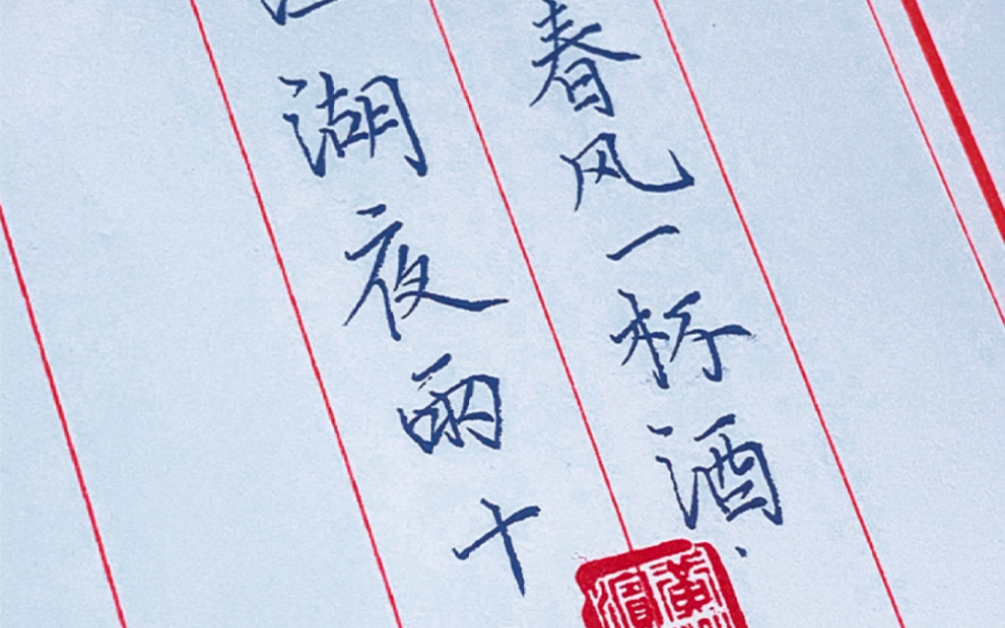 春风一杯酒
湖夜雨十
黄